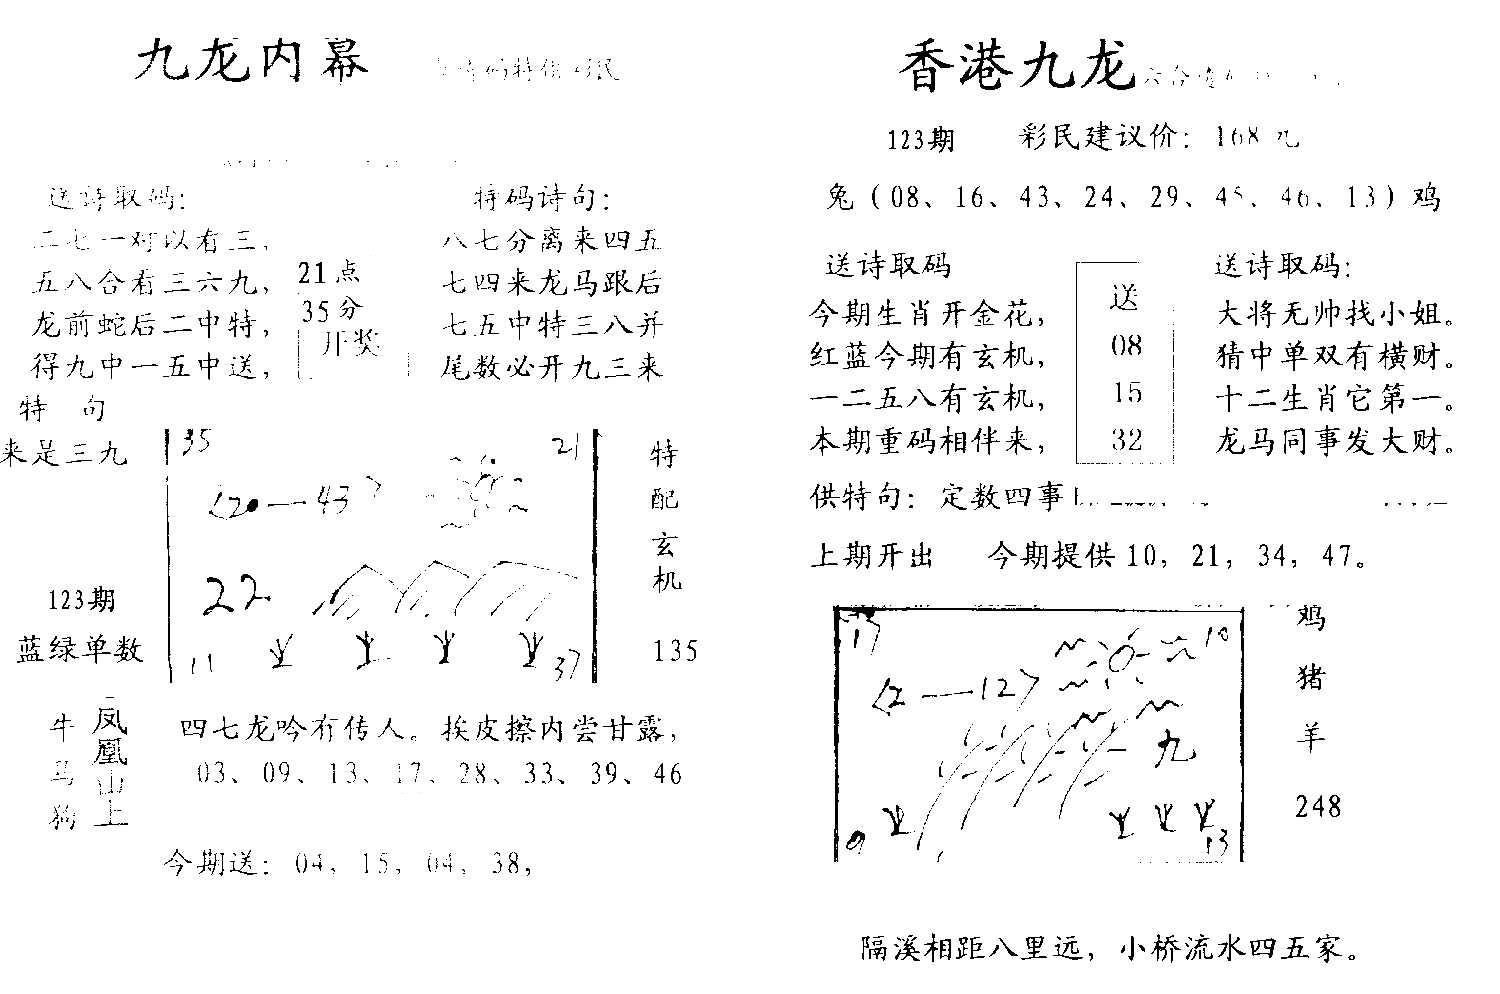 九龙内幕
送诗取码:
二七一对以有三,
五八合看三六九,
龙前蛇后二中特,
得九中一五中送,
21点
35分
开奖
特码诗句:
八七分离来四五
七四来龙马跟后
七五中特三八并
尾数必开九三来
特 句
来是三九
35 21
20—43
22
11 37
特
配
玄
机
135
123期
蓝绿单数
牛
马
狗
凤
凰
山
上
四七龙吟有传人。挨皮擦内尝甘露,
03、09、13、17、28、33、39、46
今期送: 04, 15, 04, 38,
香港九龙
123期 彩民建议价: 168元
兔(08、16、43、24、29、45、46、13)鸡
送诗取码
今期生肖开金花,
红蓝今期有玄机,
一二五八有玄机,
本期重码相伴来,
送
08
15
32
送诗取码:
大将无帅找小姐。
猜中单双有横财。
十二生肖它第一。
龙马同事发大财。
供特句: 定数四事
上期开出 今期提供10, 21, 34, 47。
17 10
2—12
九
9 13
鸡
猪
羊
248
隔溪相距八里远, 小桥流水四五家。